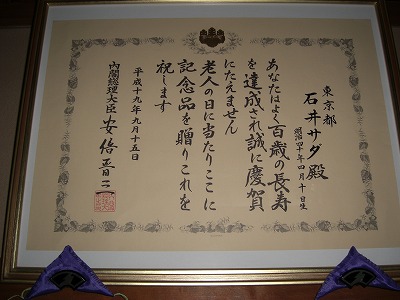 東京都
石井サダ殿
明治四十年四月十日生
あなたはよく百歳の長寿
を達成され誠に慶賀
にたえません
老人の日に当たりここに
記念品を贈りこれを
祝します
平成十九年九月十五日
内閣総理大臣 安倍晋三